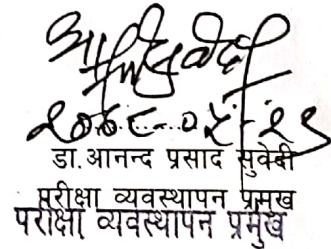 २०७८-०५-२९
डा.आनन्द प्रसाद सुवेदी
परीक्षा व्यवस्थापन प्रमुख
परीक्षा व्यवस्थापन प्रमुख